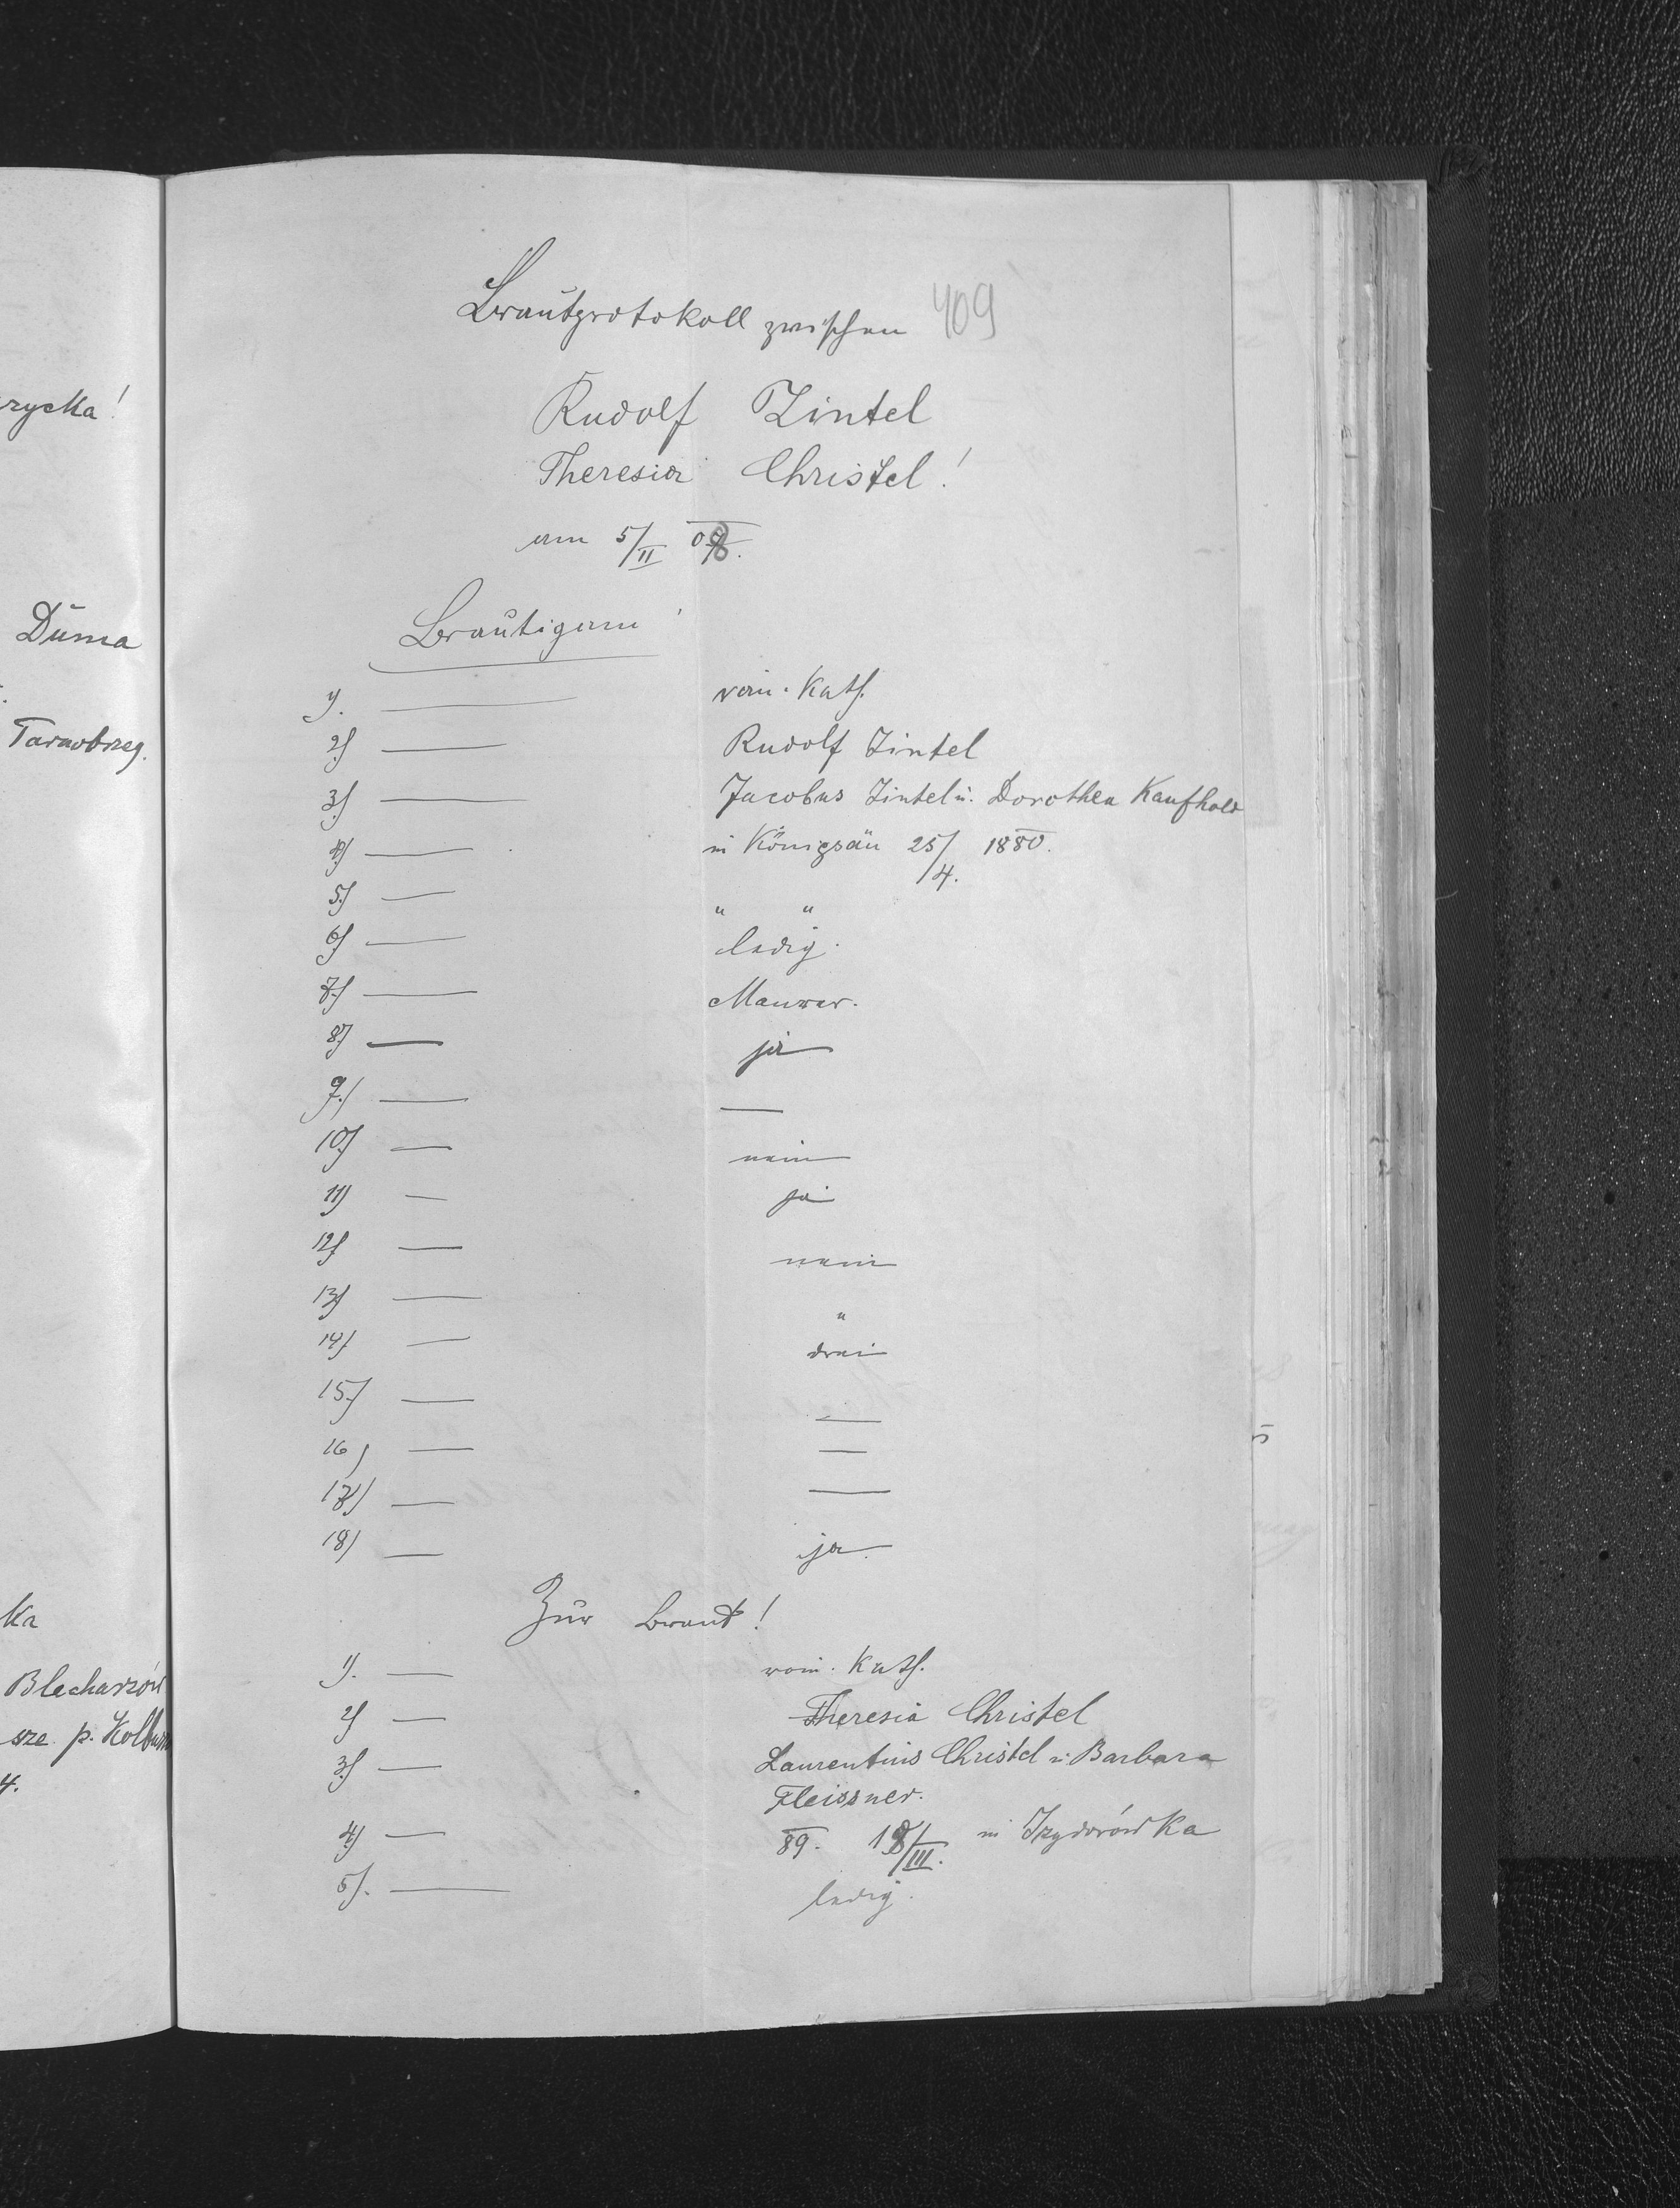 rycka!
Duma
Tarnobrzeg.
Ka
Blecharzów
sze p. Kolbusz
4.
Brautprotokoll zwischen 409
Rudolf Zintel
Theresia Christel!
am 5/II 08.
Bräutigam
1). — röm. Kath.
2) — Rudolf Zintel
3.) — Jacobus Zintel u. Dorothea Kaufhold
4) — in Königsau 25/4. 1880.
5.) — " "
6) — ledig.
7.) — Maurer.
8.) — ja
9.) — —
10.) — nein
11) — ja
12) — nein
13) — "
14) — drei
15.) — —
16) — —
17) — —
18) — ja.
Zur Braut!
1). — röm. Kath.
2) — Theresia Christel
3.) — Laurentius Christel u. Barbara
Fleissner.
4) — 89. 18/III. in Izydorówka
5). — ledig.